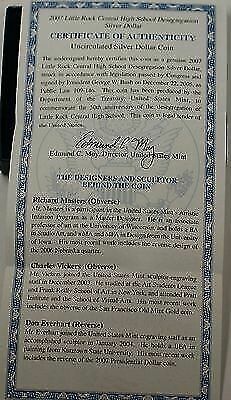 2007 Little Rock Central High School Desegregation
Silver Dollar
CERTIFICATE OF AUTHENTICITY
Uncirculated Silver Dollar Coin
The undersigned hereby certifies this coin as a genuine 2007
Little Rock Central High School Desegregation Silver Dollar,
struck in accordance with legislation passed by Congress and
signed by President George W. Bush on December 22, 2005, as
Public Law 109-146. This coin has been produced by the
Department of the Treasury, United States Mint, to
commemorate the 50th anniversary of the desegregation of
Little Rock Central High School. This coin is legal tender of
the United States.
Edmund C. Moy
Edmund C. Moy, Director, United States Mint
THE DESIGNERS AND SCULPTOR
BEHIND THE COIN
Richard Masters (Obverse)
Mr. Masters is a participant in the United States Mint Artistic
Infusion Program as a Master Designer. He is an associate
professor of art at the University of Wisconsin, and holds a BA
in Studio Art and MA and MFA in Design from the University
of Iowa. His most recent work includes the reverse design of
the 2006 Nebraska quarter.
Charles Vickers (Obverse)
Mr. Vickers joined the United States Mint sculptor-engraving
staff in December 2003. He studied at the Art Students League
and Frank Reilly School of Art in New York, and attended Pratt
Institute and the School of Visual Art. His most recent work
includes the obverse of the San Francisco Old Mint Gold coin.
Don Everhart (Reverse)
Mr. Everhart joined the United States Mint engraving staff as an
accomplished sculptor in January 2004. He holds a BFA in
from Kutztown State University. His most recent work
includes the reverse of the 2007 Presidential Dollar coin.